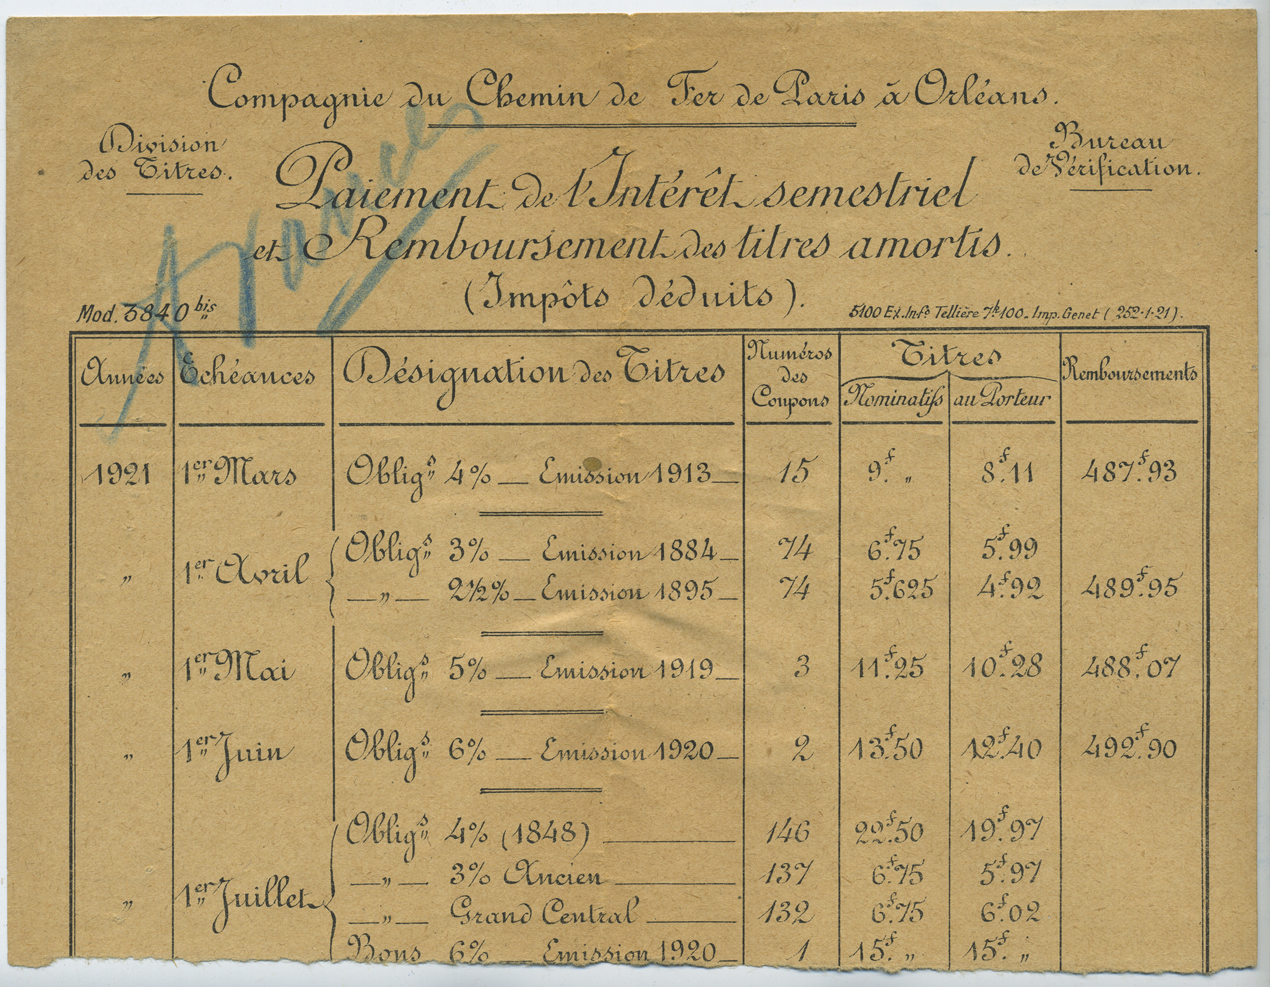 Compagnie du Chemin de Fer de Paris à Orléans.
Division
des Titres.
Bureau
de Vérification.
Paiement de l'Intérêt semestriel
et Remboursement des titres amortis.
(Impôts déduits).
Mod. 3840 bis
5100 Ex. Inf.º Tellière 7k100 - Imp. Genet (252-1-21).
Années Echéances Désignation des Titres Numéros des Coupons Titres Nominatifs au Porteur Remboursements
1921 1er Mars Obligs 4% — Emission 1913 — 15 9f. „ 8f.11 487f.93
„ 1er Avril Obligs 3% — Emission 1884 — 74 6f.75 5f.99
—„— 2½% — Emission 1895 — 74 5f.625 4f.92 489f.95
„ 1er Mai Obligs 5% — Emission 1919 — 3 11f.25 10f.28 488f.07
„ 1er Juin Obligs 6% — Emission 1920 — 2 13f.50 12f.40 492f.90
„ 1er Juillet Obligs 4% (1848) — 146 22f.50 19f.97
—„— 3% Ancien — 137 6f.75 5f.97
—„— Grand Central — 132 6f.75 6f.02
Bons 6% — Emission 1920 — 1 15f. „ 15f. „